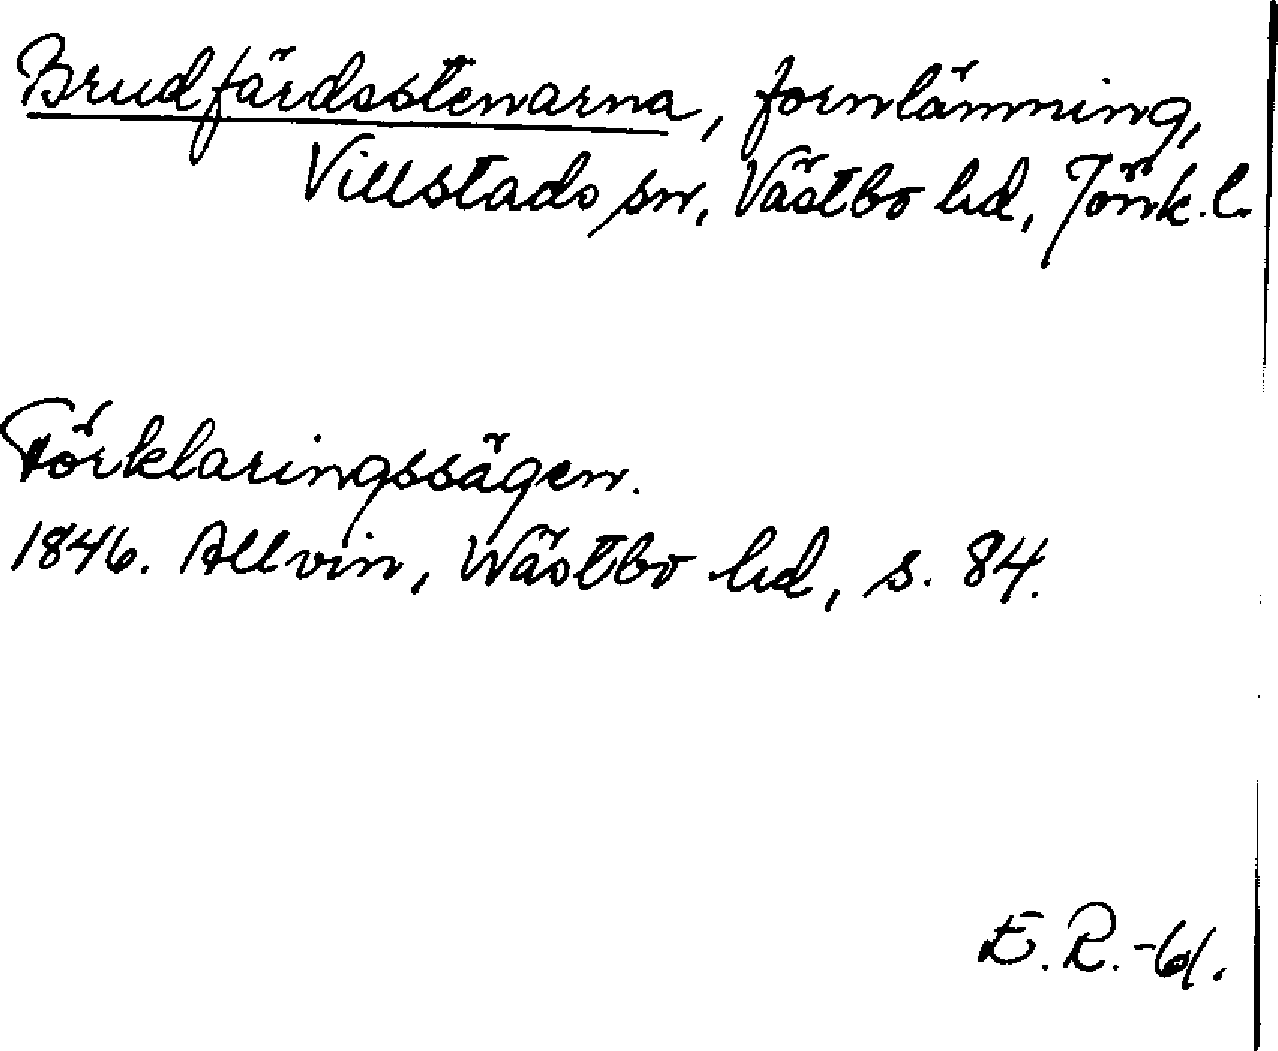 Brudfärdsstenarna, fornlämning,
Villstads sn, Västbo hd, Jönk. l.
Förklaringssägen.
1846. Allvin, Wästbo hd, s. 84.
E. R. -61.